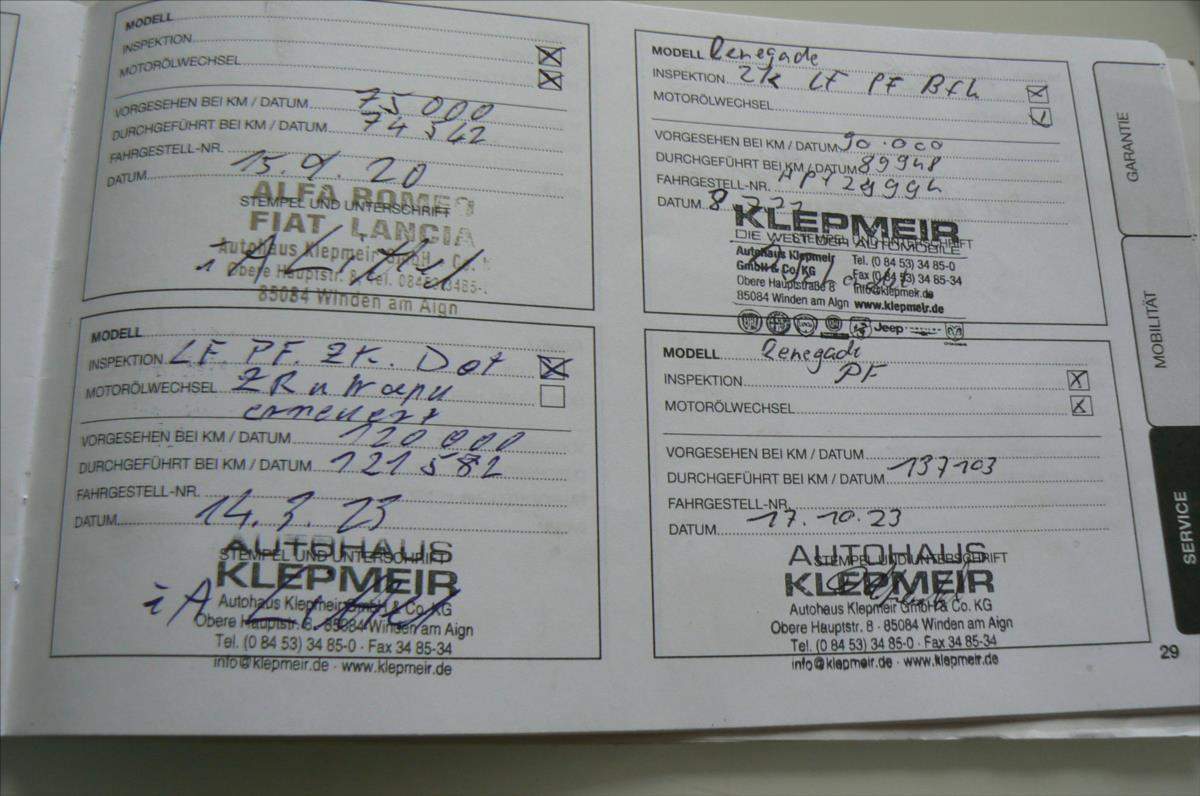 MODELL
INSPEKTION
MOTORÖLWECHSEL
VORGESEHEN BEI KM / DATUM 75 000
DURCHGEFÜHRT BEI KM / DATUM 74 542
FAHRGESTELL-NR.
DATUM 15.9.20
ALFA ROMEO
STEMPEL UND UNTERSCHRIFT
FIAT LANCIA
Autohaus Klepmeir GmbH & Co.
Obere Hauptstr. 8, Tel. 08453/3485-
85084 Winden am Aign
MODELL
INSPEKTION LF. PF. ZK. Dot
MOTORÖLWECHSEL ZR u Wapu
erneuert
VORGESEHEN BEI KM / DATUM 120 000
DURCHGEFÜHRT BEI KM / DATUM 121 582
FAHRGESTELL-NR.
DATUM 14.3.23
AUTOHAUS
STEMPEL UND UNTERSCHRIFT
KLEPMEIR
i A
Autohaus Klepmeir GmbH & Co. KG
Obere Hauptstr. 8 · 85084 Winden am Aign
Tel. (0 84 53) 34 85-0 · Fax 34 85-34
info@klepmeir.de · www.klepmeir.de
MODELL Renegade
INSPEKTION ZK LF PF Bfl
MOTORÖLWECHSEL
VORGESEHEN BEI KM / DATUM 90.000
DURCHGEFÜHRT BEI KM / DATUM 89948
FAHRGESTELL-NR.
DATUM
KLEPMEIR
DIE WELT DER AUTOMOBILE
STEMPEL UND UNTERSCHRIFT
Autohaus Klepmeir Tel. (0 84 53) 34 85-0
GmbH & Co. KG Fax (0 84 53) 34 85-34
Obere Hauptstraße 8 info@klepmeir.de
85084 Winden am Aign www.klepmeir.de
Jeep
MODELL Renegade
INSPEKTION PF
MOTORÖLWECHSEL
VORGESEHEN BEI KM / DATUM
DURCHGEFÜHRT BEI KM / DATUM 137103
FAHRGESTELL-NR.
DATUM 17.10.23
AUTOHAUS
STEMPEL UND UNTERSCHRIFT
KLEPMEIR
Autohaus Klepmeir GmbH & Co. KG
Obere Hauptstr. 8 · 85084 Winden am Aign
Tel. (0 84 53) 34 85-0 · Fax 34 85-34
info@klepmeir.de · www.klepmeir.de
GARANTIE
MOBILITÄT
SERVICE
29